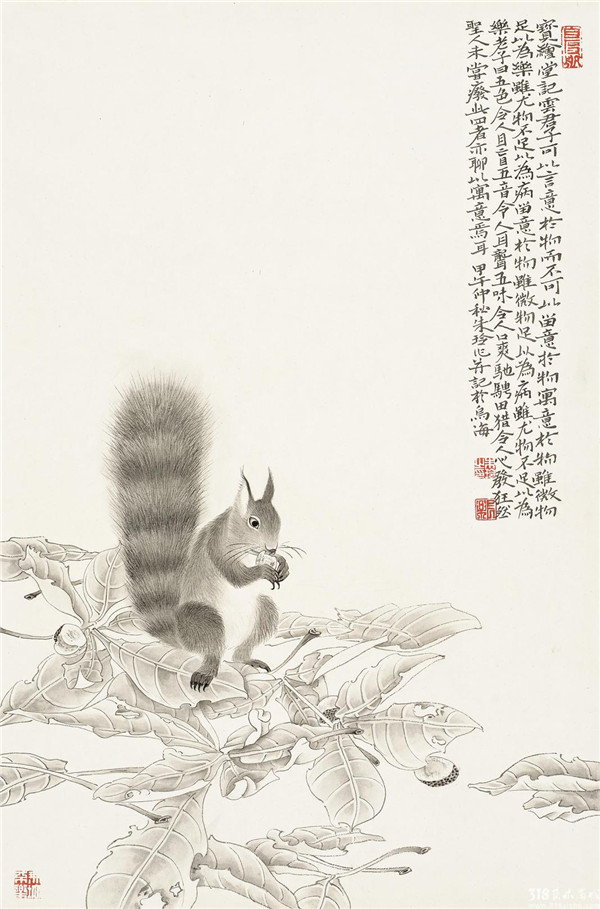 寶繪堂記雲君子可以言意於物而不可以留意於物寓意於物雖微物
足以為樂雖尤物不足以為病留意於物雖微物足以為病雖尤物不足以為
樂老子曰五色令人目盲五音令人耳聾五味令人口爽馳騁田猎令人心發狂然
聖人未嘗廢此四者亦聊以寓意焉耳 甲午仲秋朱玲作并記於烏海